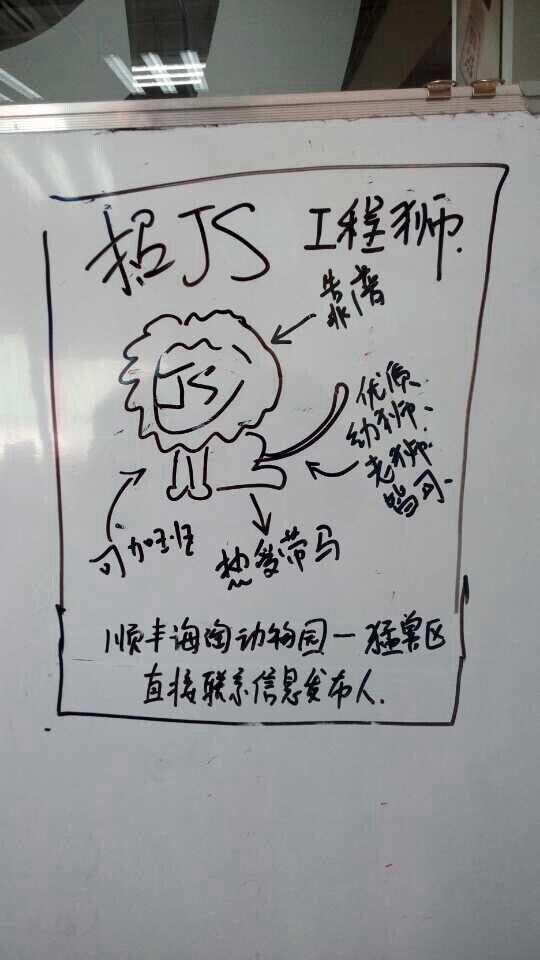 招JS 工程狮.
靠谱
JS
优质
幼狮、
老狮
皆可.
可加班
热爱带马
顺丰海淘动物园一猛兽区
直接联系信息发布人.